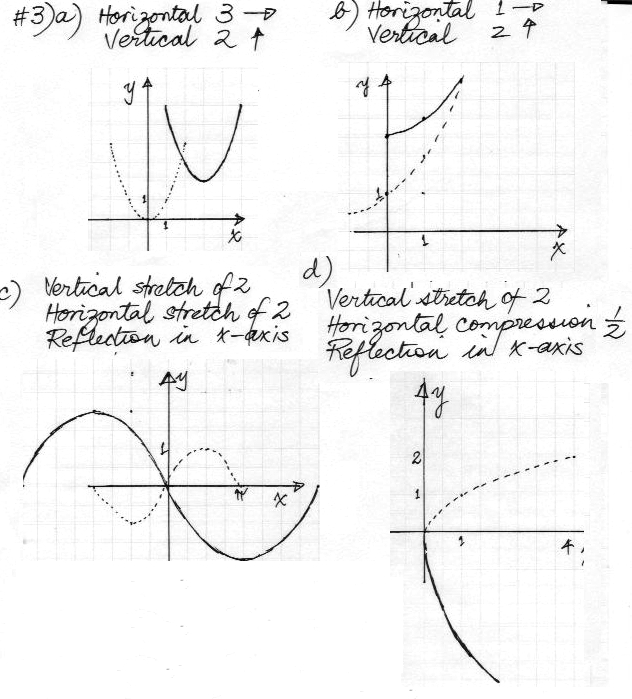 #3)a) Horizontal 3 →
Vertical 2 ↑
b) Horizontal 1 →
Vertical 2 ↑
y
1
1
x
y
1
1
x
c) Vertical stretch of 2
Horizontal stretch of 2
Reflection in x-axis
d)
Vertical stretch of 2
Horizontal compression 1/2
Reflection in x-axis
y
1
π
x
y
2
1
1
4